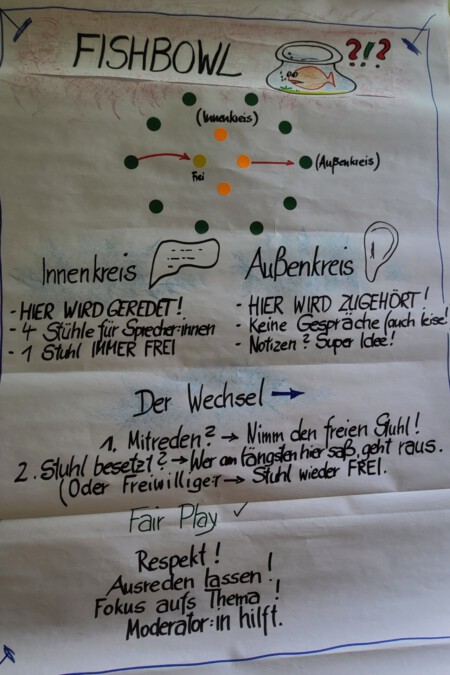 FISHBOWL ?!?
(Innenkreis)
Frei
(Außenkreis)
Innenkreis
- HIER WIRD GEREDET!
- 4 Stühle für Sprecher:innen
- 1 Stuhl IMMER FREI
Außenkreis
- HIER WIRD ZUGEHÖRT!
- Keine Gespräche (auch leise!
- Notizen? Super Idee!
Der Wechsel →
1. Mitreden? → Nimm den freien Stuhl!
2. Stuhl besetzt? → Wer am längsten hier saß, geht raus.
(Oder Freiwillige:r → Stuhl wieder FREI.
Fair Play ✓
Respekt!
Ausreden lassen!
Fokus aufs Thema!
Moderator:in hilft.